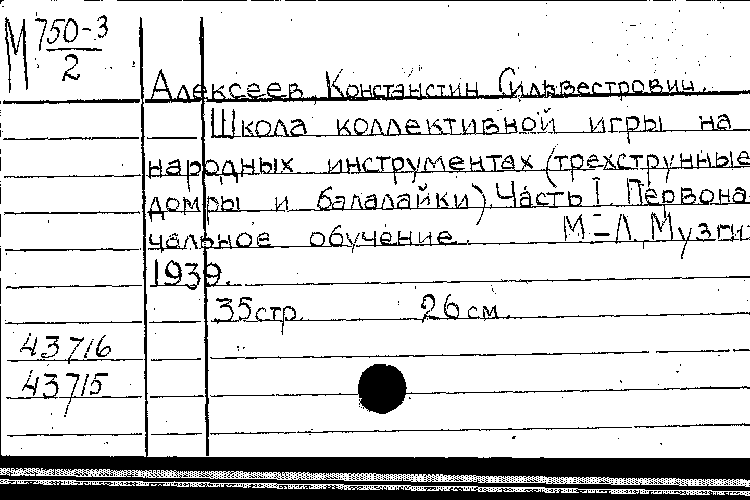 М 750-3
2
Алексеев, Константин Сильвестрович.
Школа коллективной игры на
народных инструментах (трехструнные
домры и балалайки). Часть I. Первона-
чальное обучение. М.-Л. Музги
1939.
35 стр. 26 см.
43716
43715